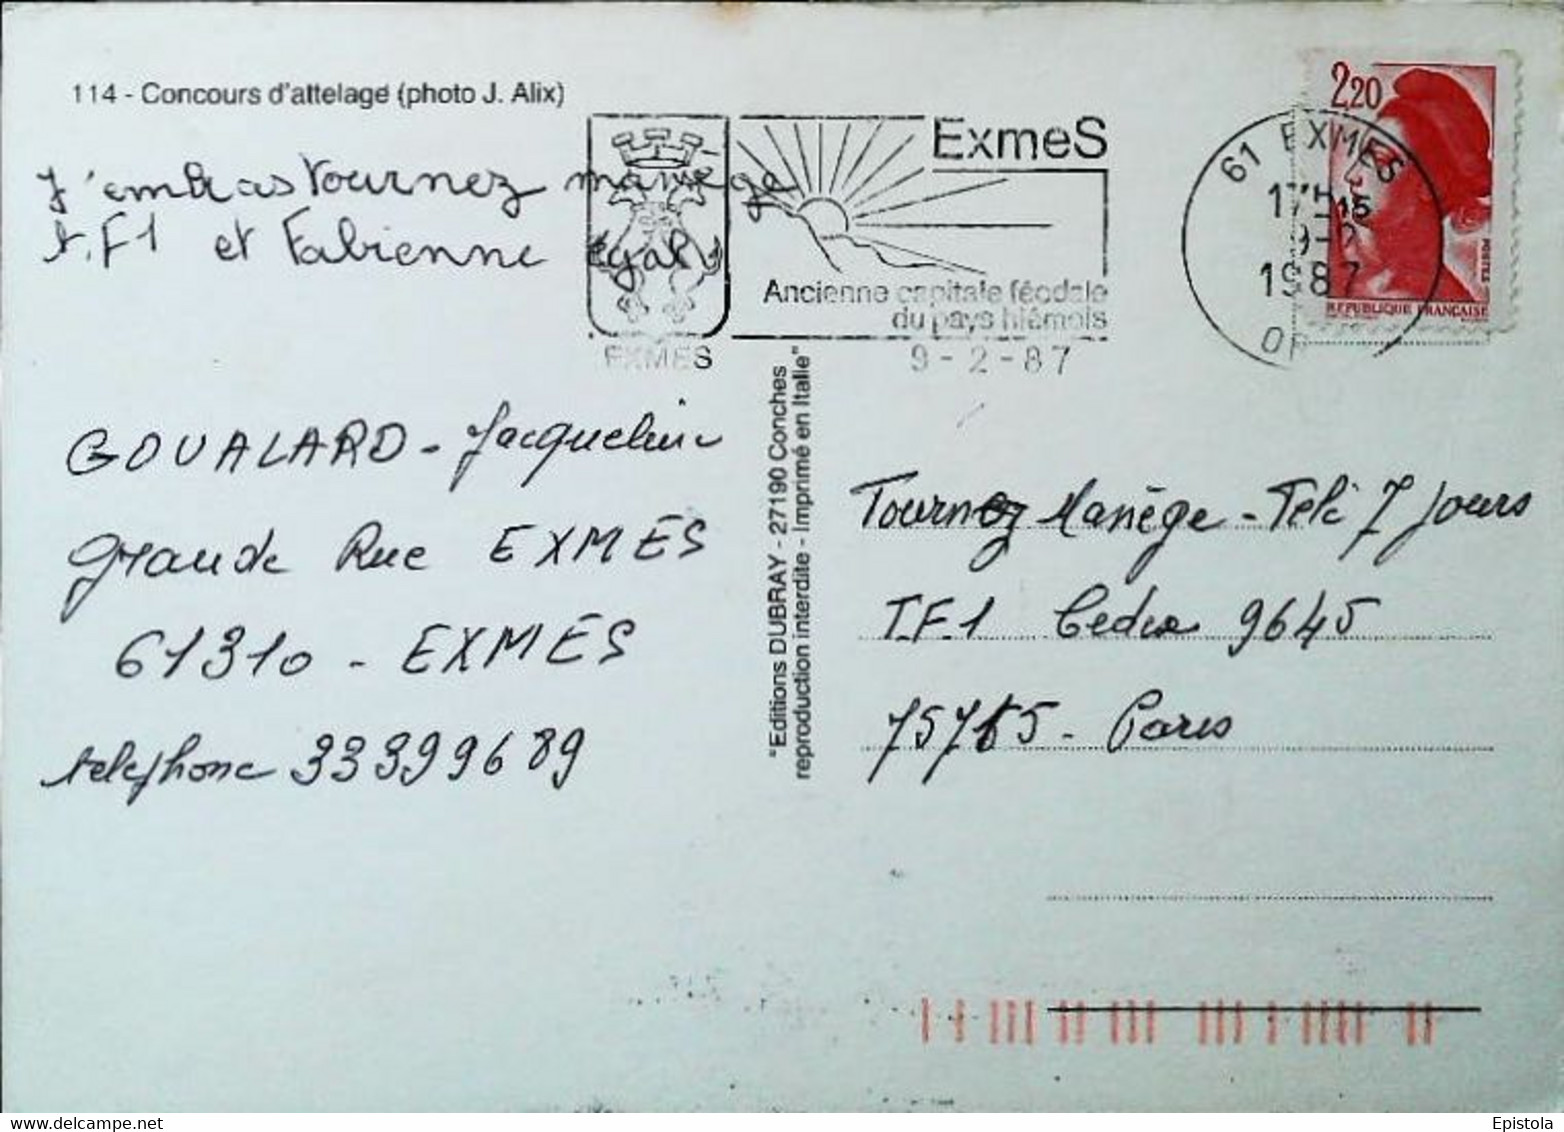 114 - Concours d'attelage (photo J. Alix)
J'embras tournez manège
t.F1 et Fabienne égal
EXMES
ExmeS
Ancienne capitale féodale
du pays hiémois
9-2-87
61 EXMES
17H15
9-2
1987
OR
2,20
POSTES
REPUBLIQUE FRANÇAISE
GOUALARD - Jacqueline
Grande Rue EXMES
61310 - EXMES
telephone 33399689
"Editions DUBRAY - 27190 Conches
reproduction interdite - Imprimé en Italie"
Tournez Manège - Télé 7 Jours
T.F.1 Cedex 9645
75765 - Paris
delcampe.net
Epistola